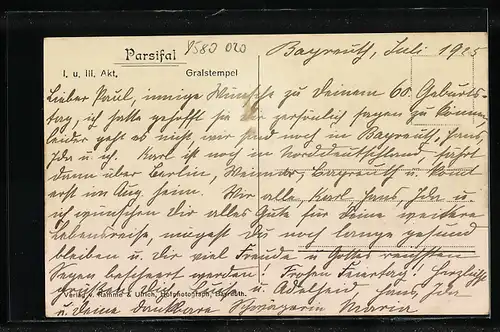 Parsifal
8580 020
I. u. III. Akt. Gralstempel
Bayreuth, Juli 1925
Lieber Paul, innige Wünsche zu Deinem 60. Geburts-
tag, ich hatte gehofft sie Dir persönlich sagen zu können
leider geht es nicht, wir sind noch in Bayreuth, Hans,
Ida u. ich. Karl ist noch in Norddeutschland, fährt
dann über Berlin, Weimar, Bayreuth u. kommt
erst im Aug. heim. Wir alle Karl, Hans, Ida u.
ich wünschen Dir alles Gute für Deine weitere
Lebensreise, mögest Du noch lange gesund
bleiben u. Dir viel Freude u. Gottes reichsten
Segen beschert werden! Frohen Feiertag! Herzlichst
grüßen Dich, u. Adelheid Hans, Ida
Verlag v. Ramme & Ulrich, Hofphotograph, Bayreuth.
u. Deine dankbare Schwägerin Maria